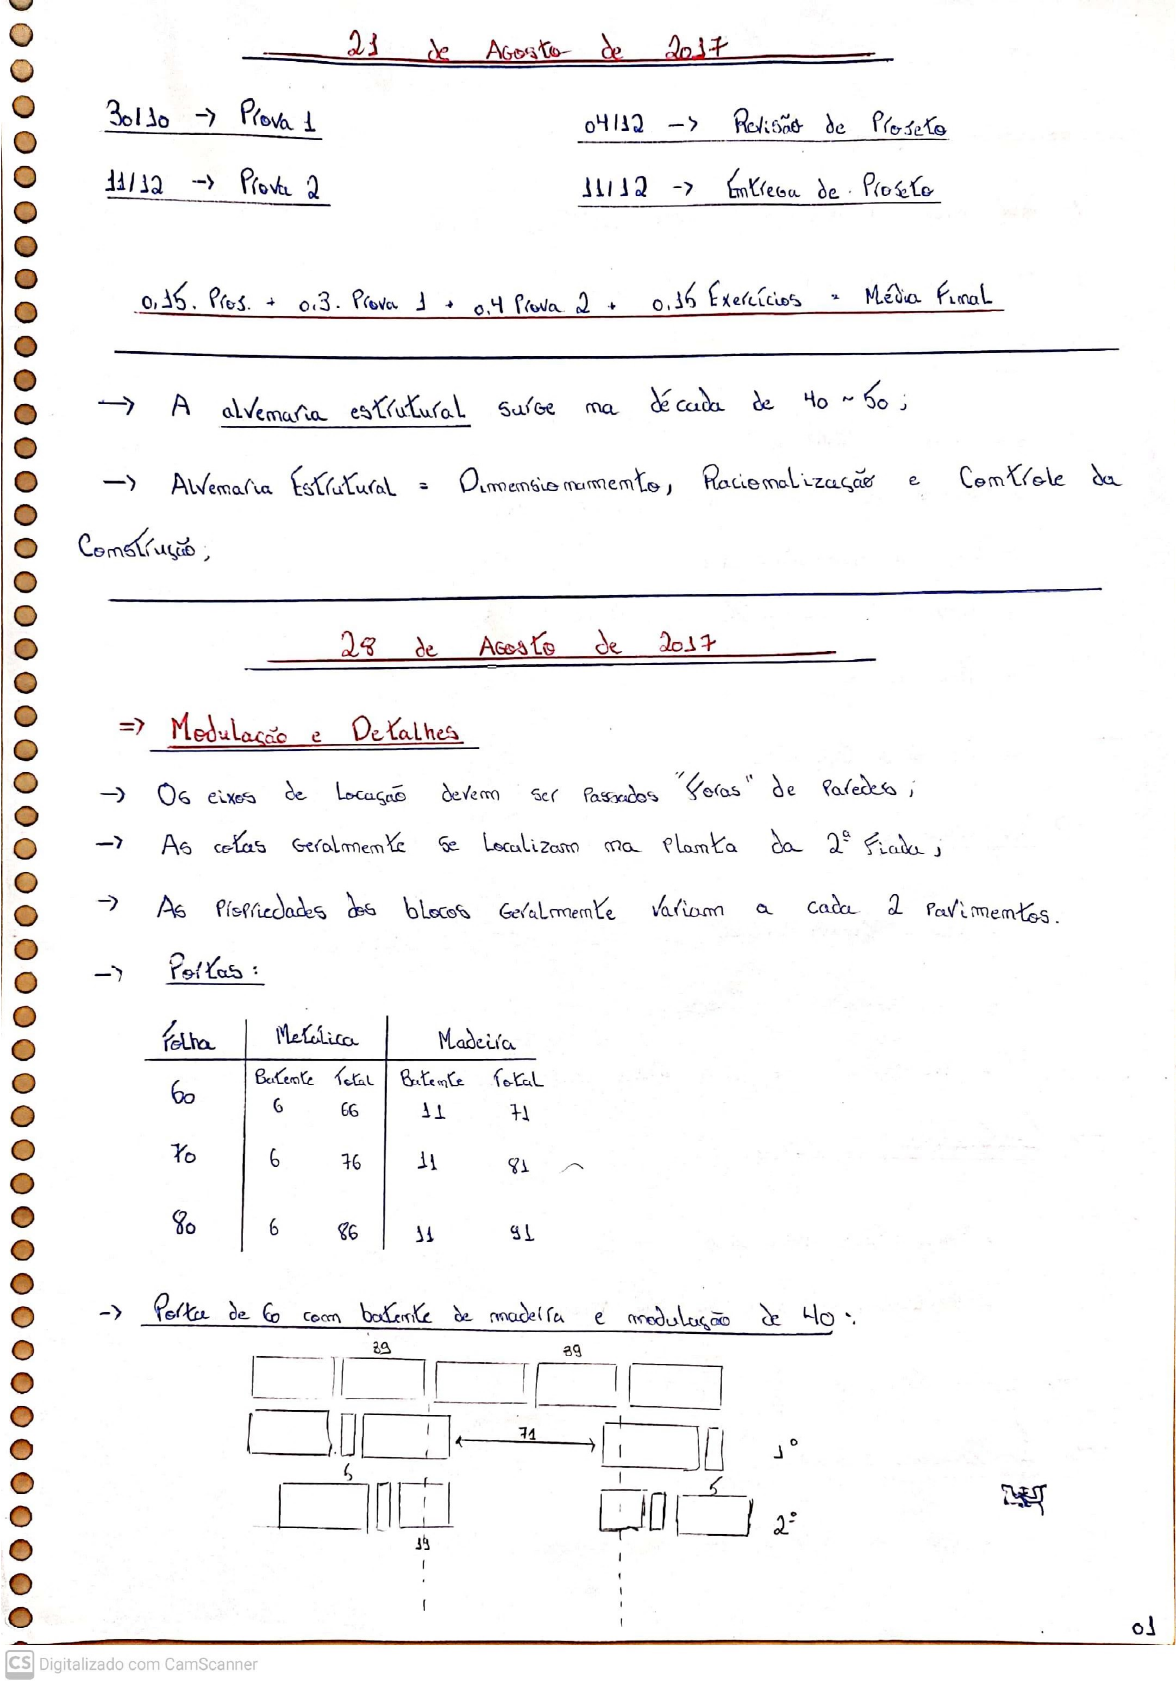 21 de Agosto de 2017
30/10 -> Prova 1
04/12 -> Revisão de Projeto
11/12 -> Prova 2
11/12 -> Entrega de Projeto
0,15. Proj. + 0,3. Prova 1 + 0,4 Prova 2 + 0,15 Exercícios = Média Final
-> A alvenaria estrutural surge na década de 40 ~ 50;
-> Alvenaria Estrutural = Dimensionamento, Racionalização e Controle da
Construção;
28 de Agosto de 2017
=> Modulação e Detalhes
-> Os eixos de locação devem ser passados "foras" de paredes;
-> As cotas geralmente se localizam na planta da 2ª fiada;
-> As propriedades dos blocos geralmente variam a cada 2 pavimentos.
-> Portas:
Folha Metálica Madeira
Batente Total Batente Total
60 6 66 11 71
70 6 76 11 81
80 6 86 11 91
-> Porta de 60 com batente de madeira e modulação de 40:
39 39
71 1º
5 5
2º
19
01
CS Digitalizado com CamScanner